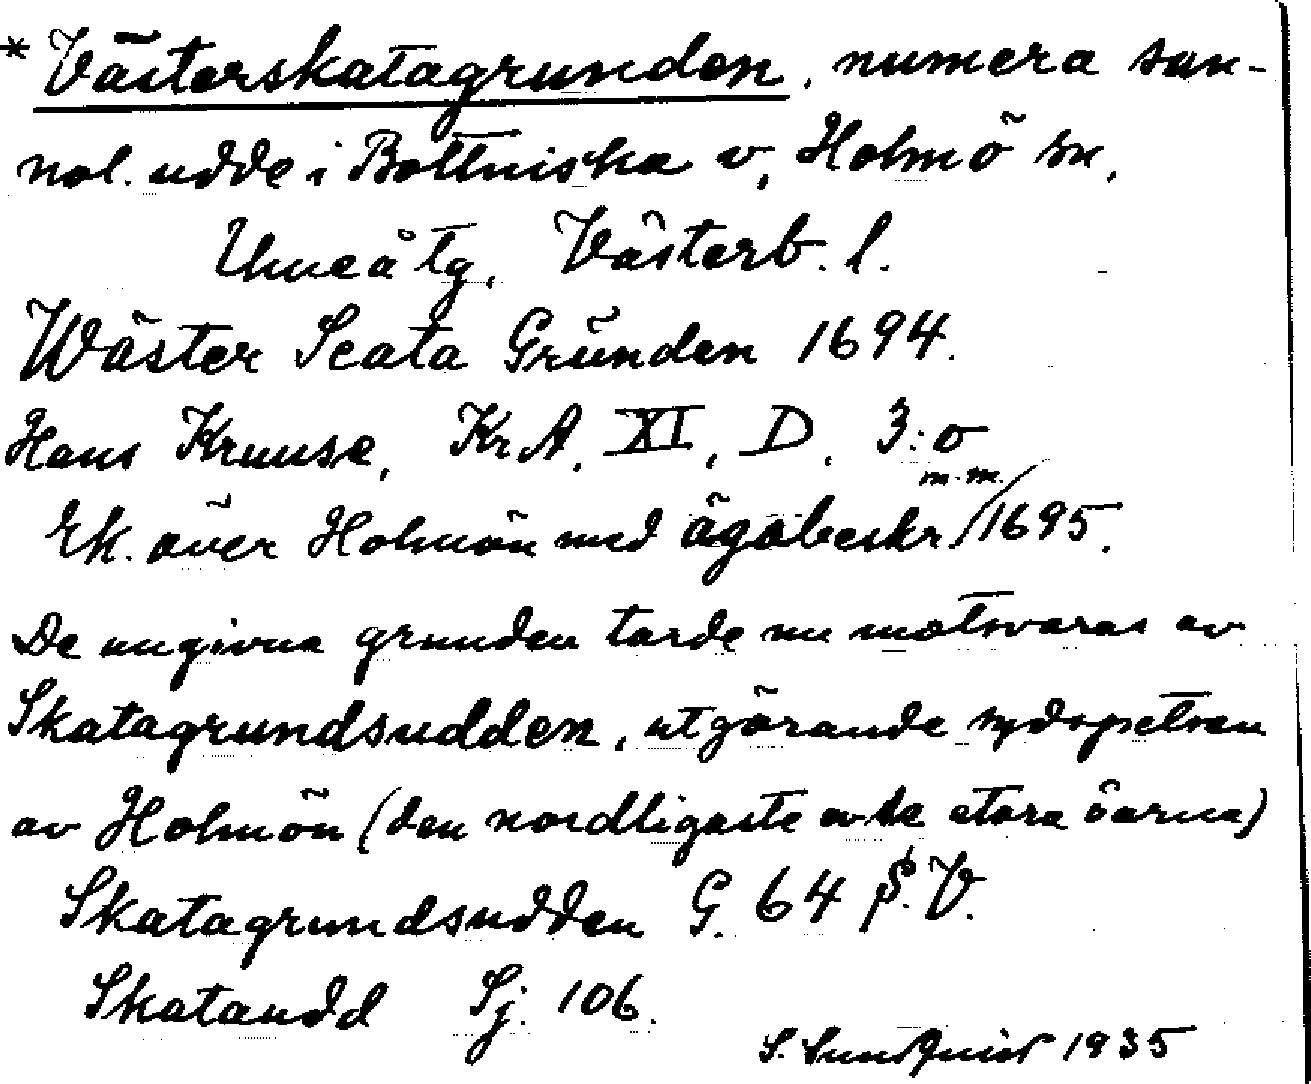 * Västerskatagrunden, numera san-
nol. udde i Bottniska v, Holmö sn,
Umeå tg, Västerb. l.
Wäster Scata Grŭnden 1694.
Hans Kruuse, KrA, XI, D, 3:o
m.m.
Ek. över Holmön med ägobeskr./1695.
De angivna grunden torde nu motsvaras av
Skatagrundsudden, utgörande sydspetsen
av Holmön (den nordligaste av de stora öarna)
Skatagrundsudden G. 64 S.V.
Skataudd Sj. 106.
S. Sundquist 1935